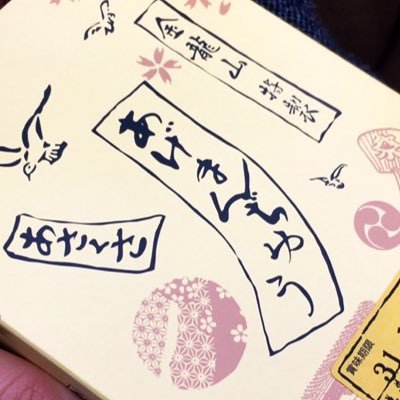 金龍山 特製
あげまんぢゅう
あさくさ
賞味期限
31